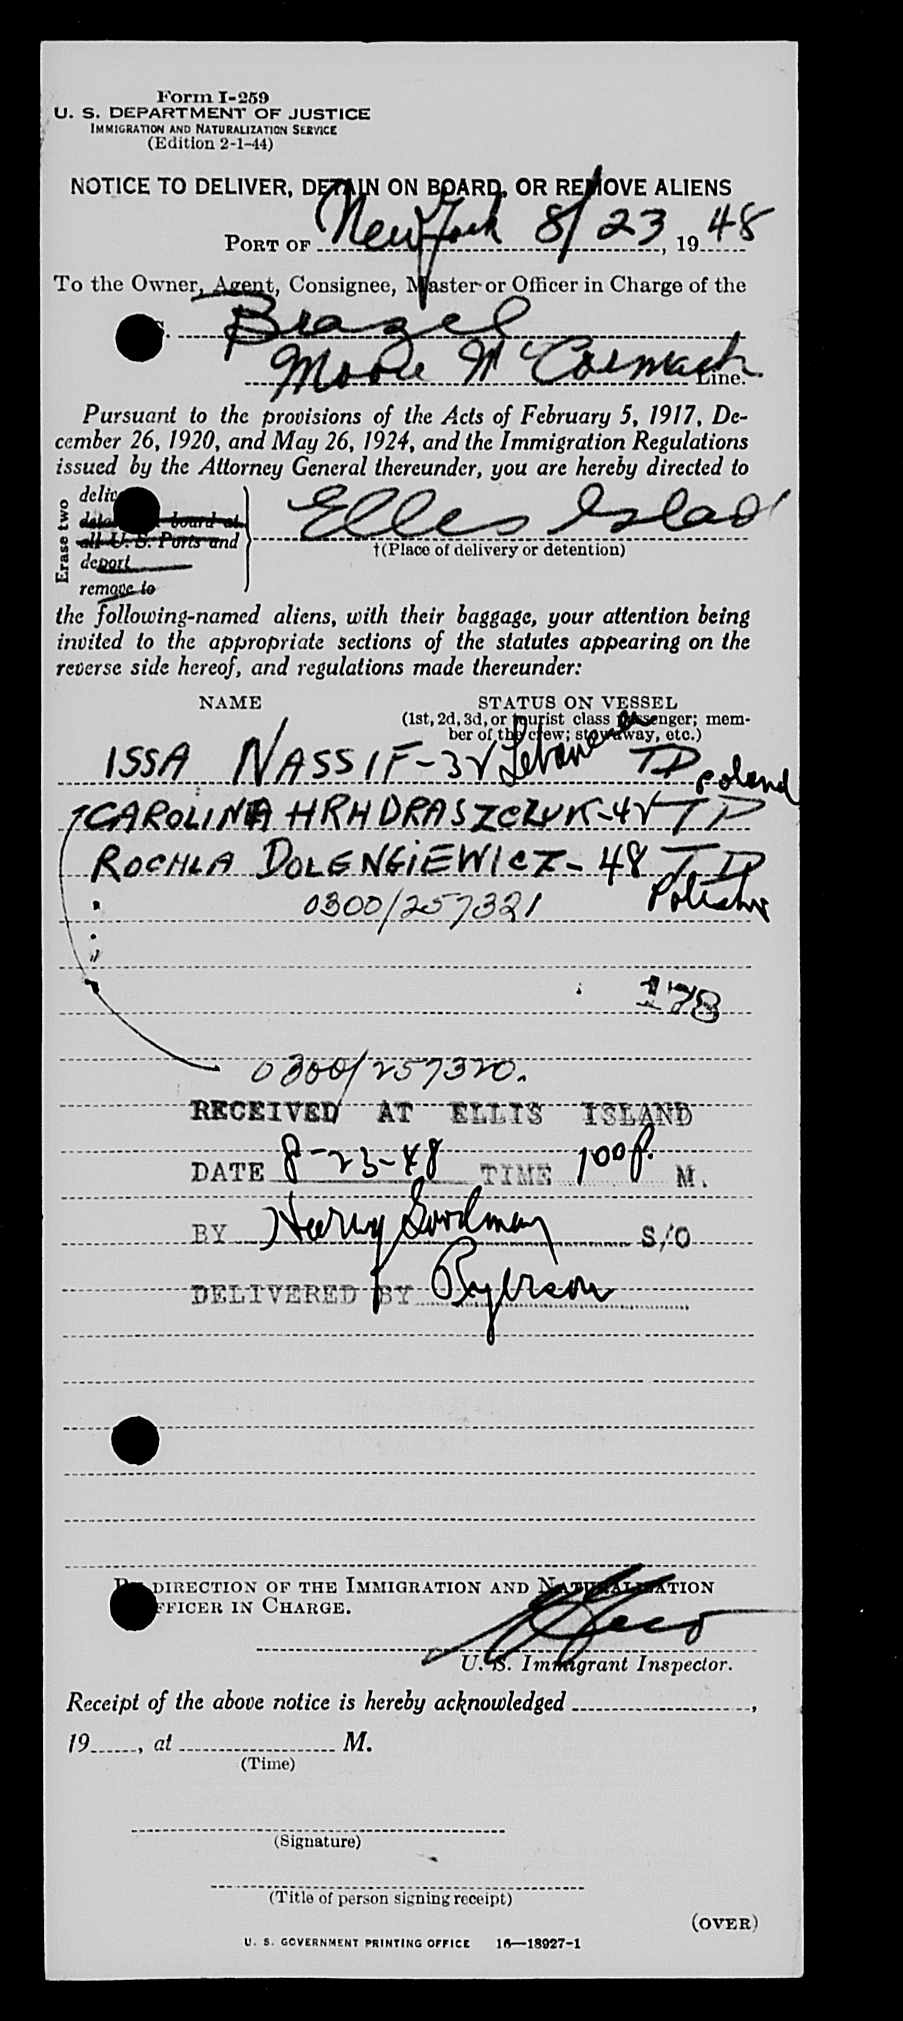 Form I-259
U. S. DEPARTMENT OF JUSTICE
IMMIGRATION AND NATURALIZATION SERVICE
(Edition 2-1-44)
NOTICE TO DELIVER, DETAIN ON BOARD, OR REMOVE ALIENS
PORT OF New York 8/23, 1948
To the Owner, Agent, Consignee, Master or Officer in Charge of the
S. Brazel
Moore McCormack Line.
Pursuant to the provisions of the Acts of February 5, 1917, De-
cember 26, 1920, and May 26, 1924, and the Immigration Regulations
issued by the Attorney General thereunder, you are hereby directed to
Erase two
deliv
board at
all U. S. Ports and
deport
remove to
Elles Islad
†(Place of delivery or detention)
the following-named aliens, with their baggage, your attention being
invited to the appropriate sections of the statutes appearing on the
reverse side hereof, and regulations made thereunder:
NAME STATUS ON VESSEL
(1st, 2d, 3d, or tourist class passenger; mem-
ber of the crew; stowaway, etc.)
ISSA NASSIF-3 Lebanese TD
Poland
CAROLINA HRHDRASZCZUK-4 TD
ROCHLA DOLENGIEWICZ-48 TD
0300/257321 Polish
178
0300/257320.
RECEIVED AT ELLIS ISLAND
DATE 8-23-48 TIME 100 P. M.
BY Harry Goodman S/O
DELIVERED BY Ryerson
DIRECTION OF THE IMMIGRATION AND NATURALIZATION
FFICER IN CHARGE.
U. S. Immigrant Inspector.
Receipt of the above notice is hereby acknowledged ,
19 , at M.
(Time)
(Signature)
(Title of person signing receipt)
(OVER)
U. S. GOVERNMENT PRINTING OFFICE 16—18927-1